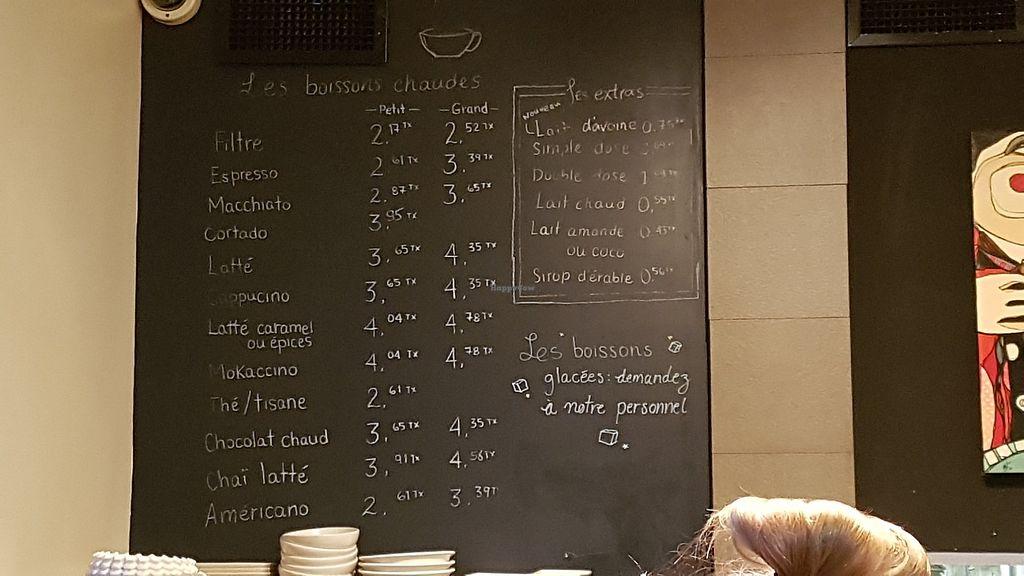 Les boissons chaudes
—Petit— —Grand—
Filtre 2.17 TX 2.52 TX
Espresso 2.61 TX 3.39 TX
Macchiato 2.87 TX 3.65 TX
Cortado 3.95 TX
Latté 3.65 TX 4.35 TX
Cappucino 3.65 TX 4.35 TX
Latté caramel 4.04 TX 4.78 TX
ou épices
Mokaccino 4.04 TX 4.78 TX
Thé/tisane 2.61 TX
Chocolat chaud 3.65 TX 4.35 TX
Chaï latté 3.91 TX 4.56 TX
Américano 2.61 TX 3.39 T
Les extras
NOUVEAU
Lait d'avoine 0.75
Simple dose
Double dose
Lait chaud 0,55 TX
Lait amande 0.45 TX
ou coco
Sirop d'érable 0,56 TX
Les boissons
glacées: demandez
à notre personnel
HappyCow